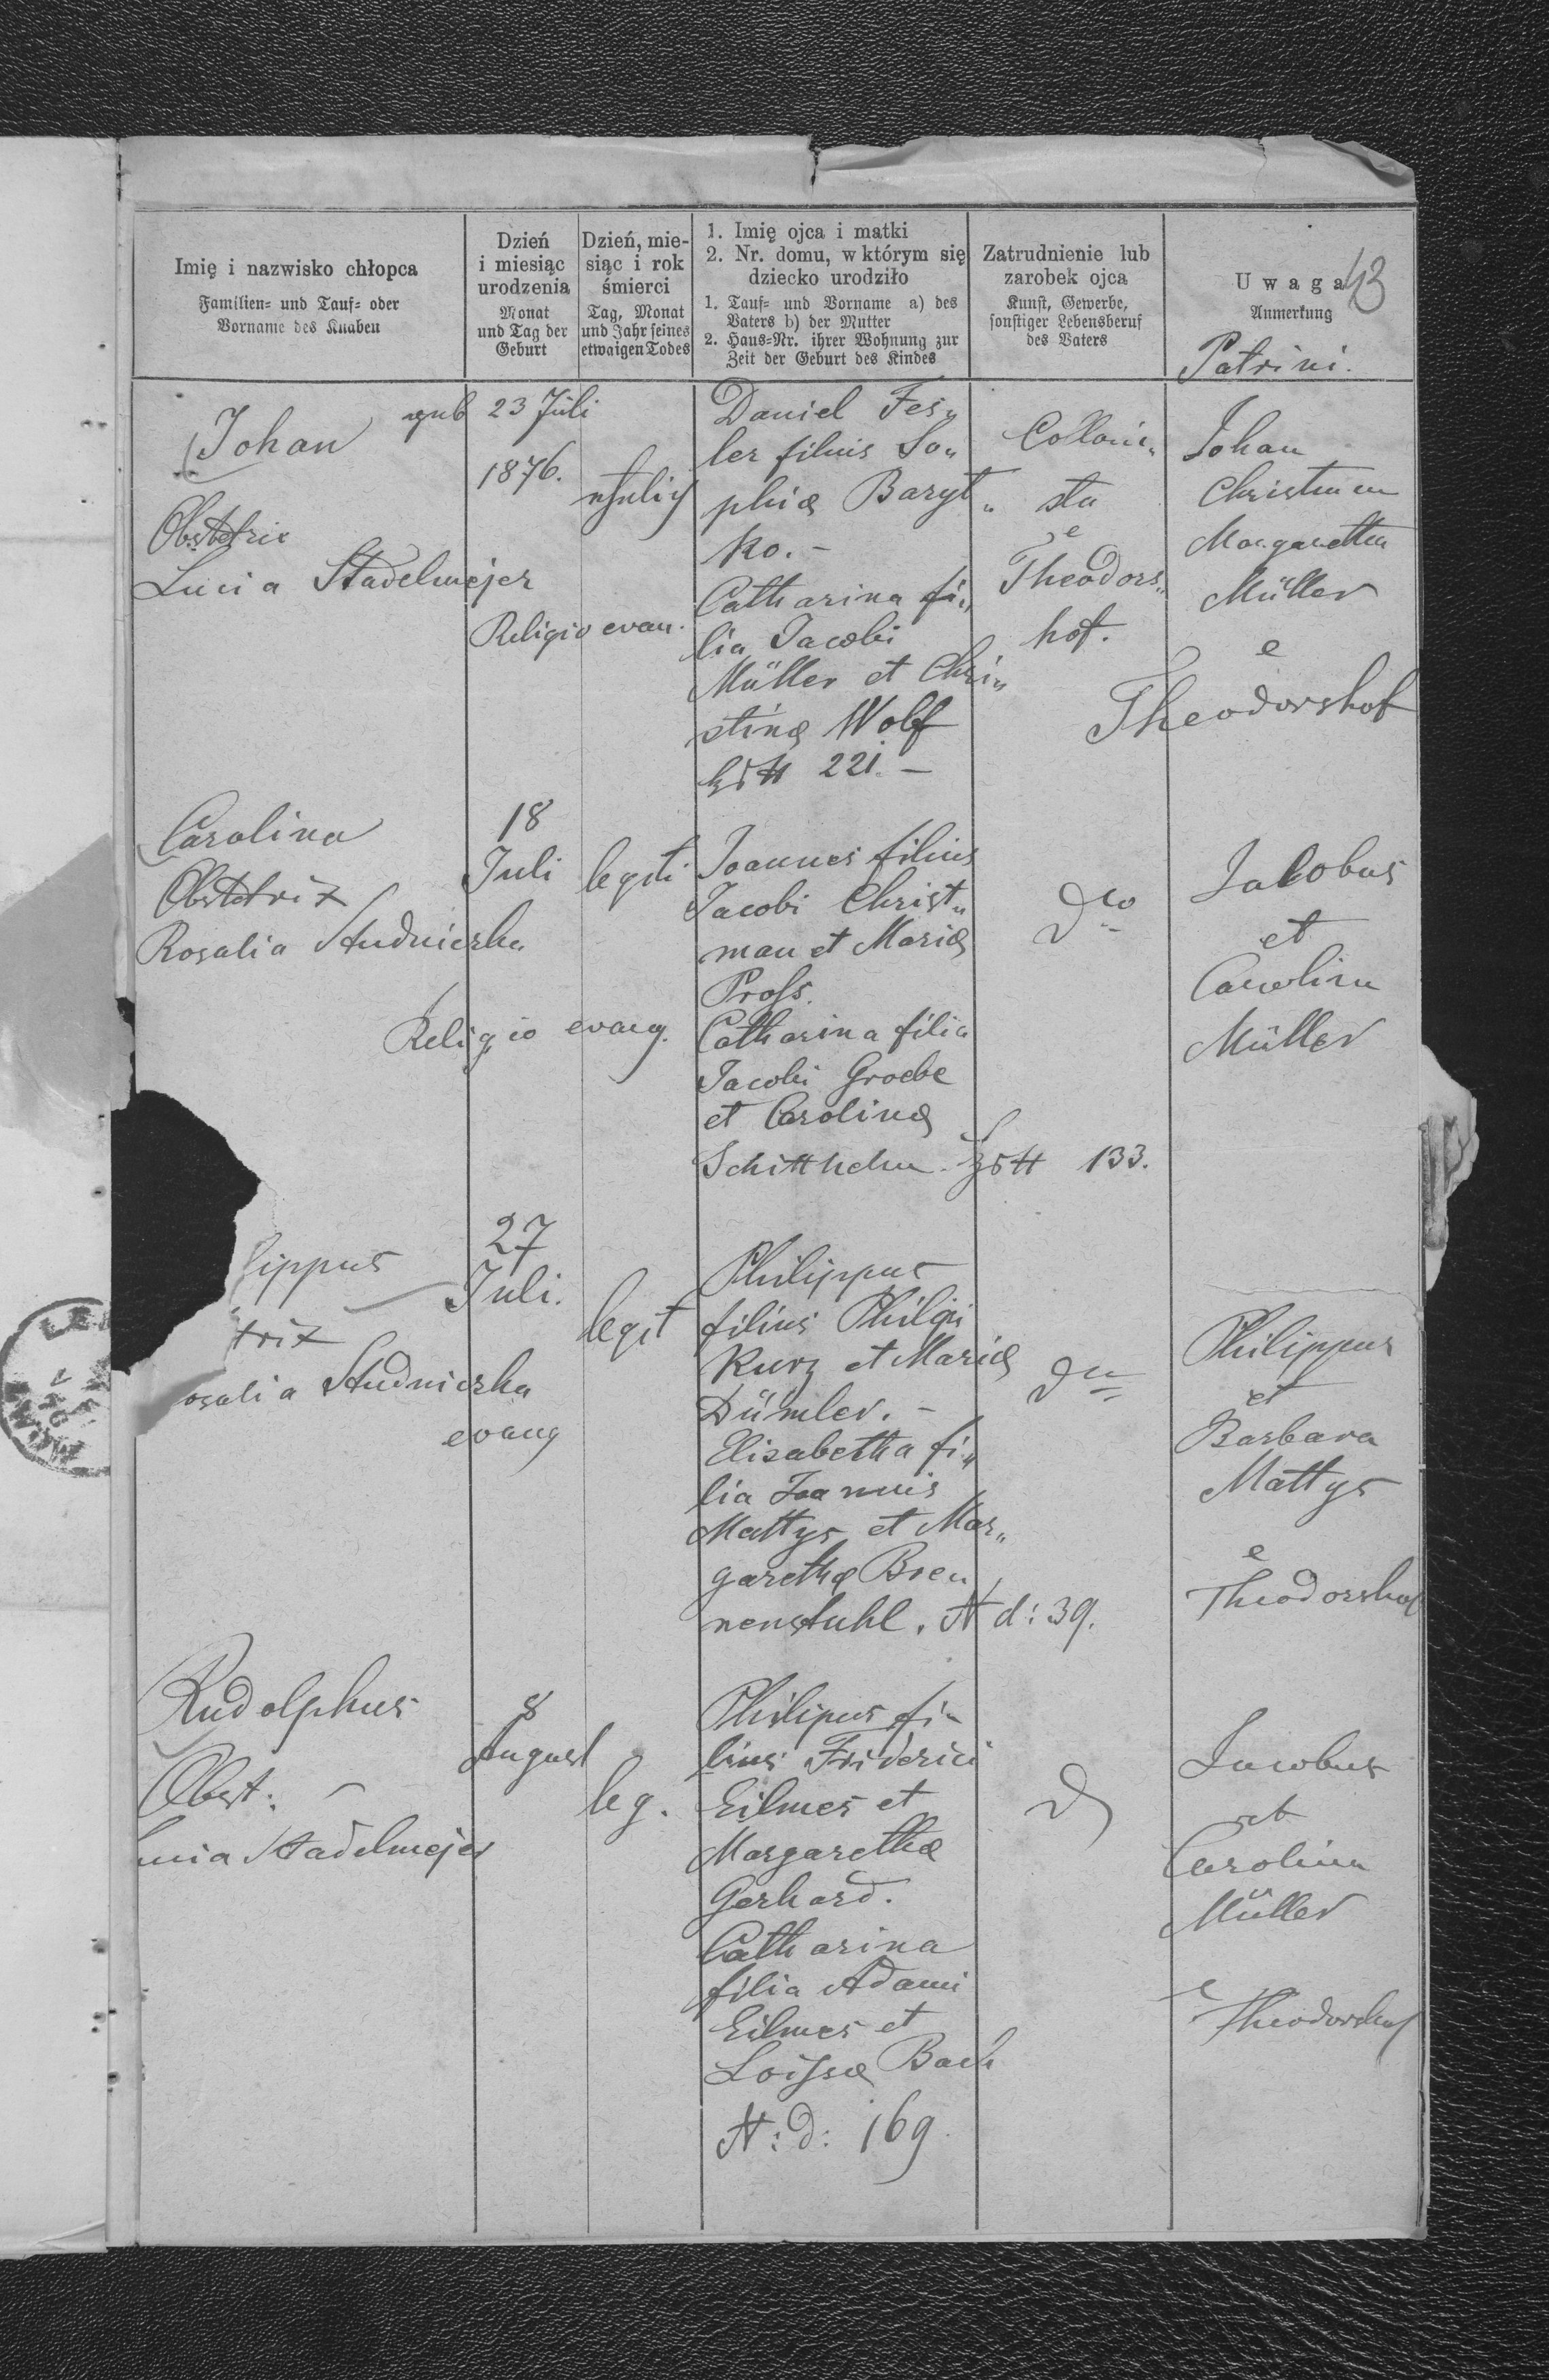 43
Imię i nazwisko chłopca
Familien- und Tauf- oder
Vorname des Knaben
Dzień
i miesiąc
urodzenia
Monat
und Tag der
Geburt
Dzień, mie-
siąc i rok
śmierci
Tag, Monat
und Jahr seines
etwaigen Todes
1. Imię ojca i matki
2. Nr. domu, w którym się
dziecko urodziło
1. Tauf- und Vorname a) des
Vaters b) der Mutter
2. Haus-Nr. ihrer Wohnung zur
Zeit der Geburt des Kindes
Zatrudnienie lub
zarobek ojca
Kunst, Gewerbe,
sonstiger Lebensberuf
des Vaters
Uwaga
Anmerkung
Patrini.
Johan
Obstetrix
Lucia Stadelmejer
23 Juli
1876.
Religio evan.
Daniel Fes„
ler filius So„
phiæ Baryt„
ko.-
Catharina fi„
lia Jacobi
Müller et Chri„
stinæ Wolf
221.-
Colloni„
sta
e
Theodors„
hof.
Johan
Christman
Margaretha
Müller
e
Theodorshof
Carolina
Obstetrix
Rosalia Studniczka
Religio evang.
18
Juli
legiti
Joannes filius
Jacobi Christ„
man et Mariæ
Pross.
Catharina filia
Jacobi Groebe
et Carolinæ
Schitthelm. 133.
Dto
Jacobus
et
Carolina
Müller
lippus
trix
osalia Studniczka
evang
27
Juli.
legit
Philippus
filius Philipi
Kurz et Mariæ
Dümler.-
Elisabetha fi„
lia Joannis
Mattys et Mar„
garethæ Bren
nenstuhl. N d: 39.
Dto
Philippus
et
Barbara
Mattys
e
Theodorshof
Rudolphus
Obst:
ucia Stadelmejer
8
August
leg.
Philipus fi-
lius Friderici
Eilmes et
Margarethæ
Gerhard.
Catharina
filia Adami
Eilmes et
Loissæ Bach
N: d: 169.
D
Jacobus
et
Carolina
Müller
e
Theodorshof